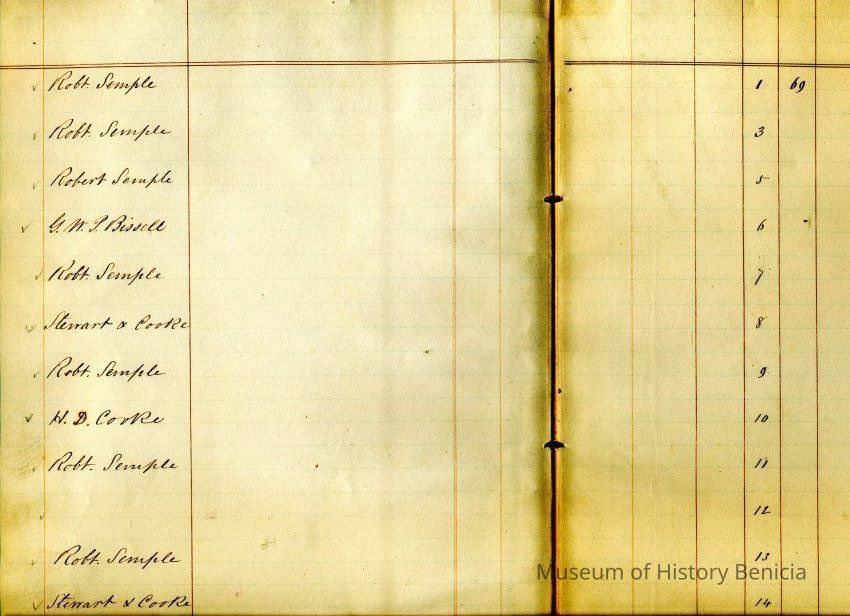 Robt. Semple 1 69
Robt. Semple 3
Robert Semple 5
G. W. P. Bissell 6
Robt. Semple 7
Stewart & Cooke 8
Robt. Semple 9
H. D. Cooke 10
Robt. Semple 11
12
Robt. Semple 13
Museum of History Benicia
Stewart & Cooke 14